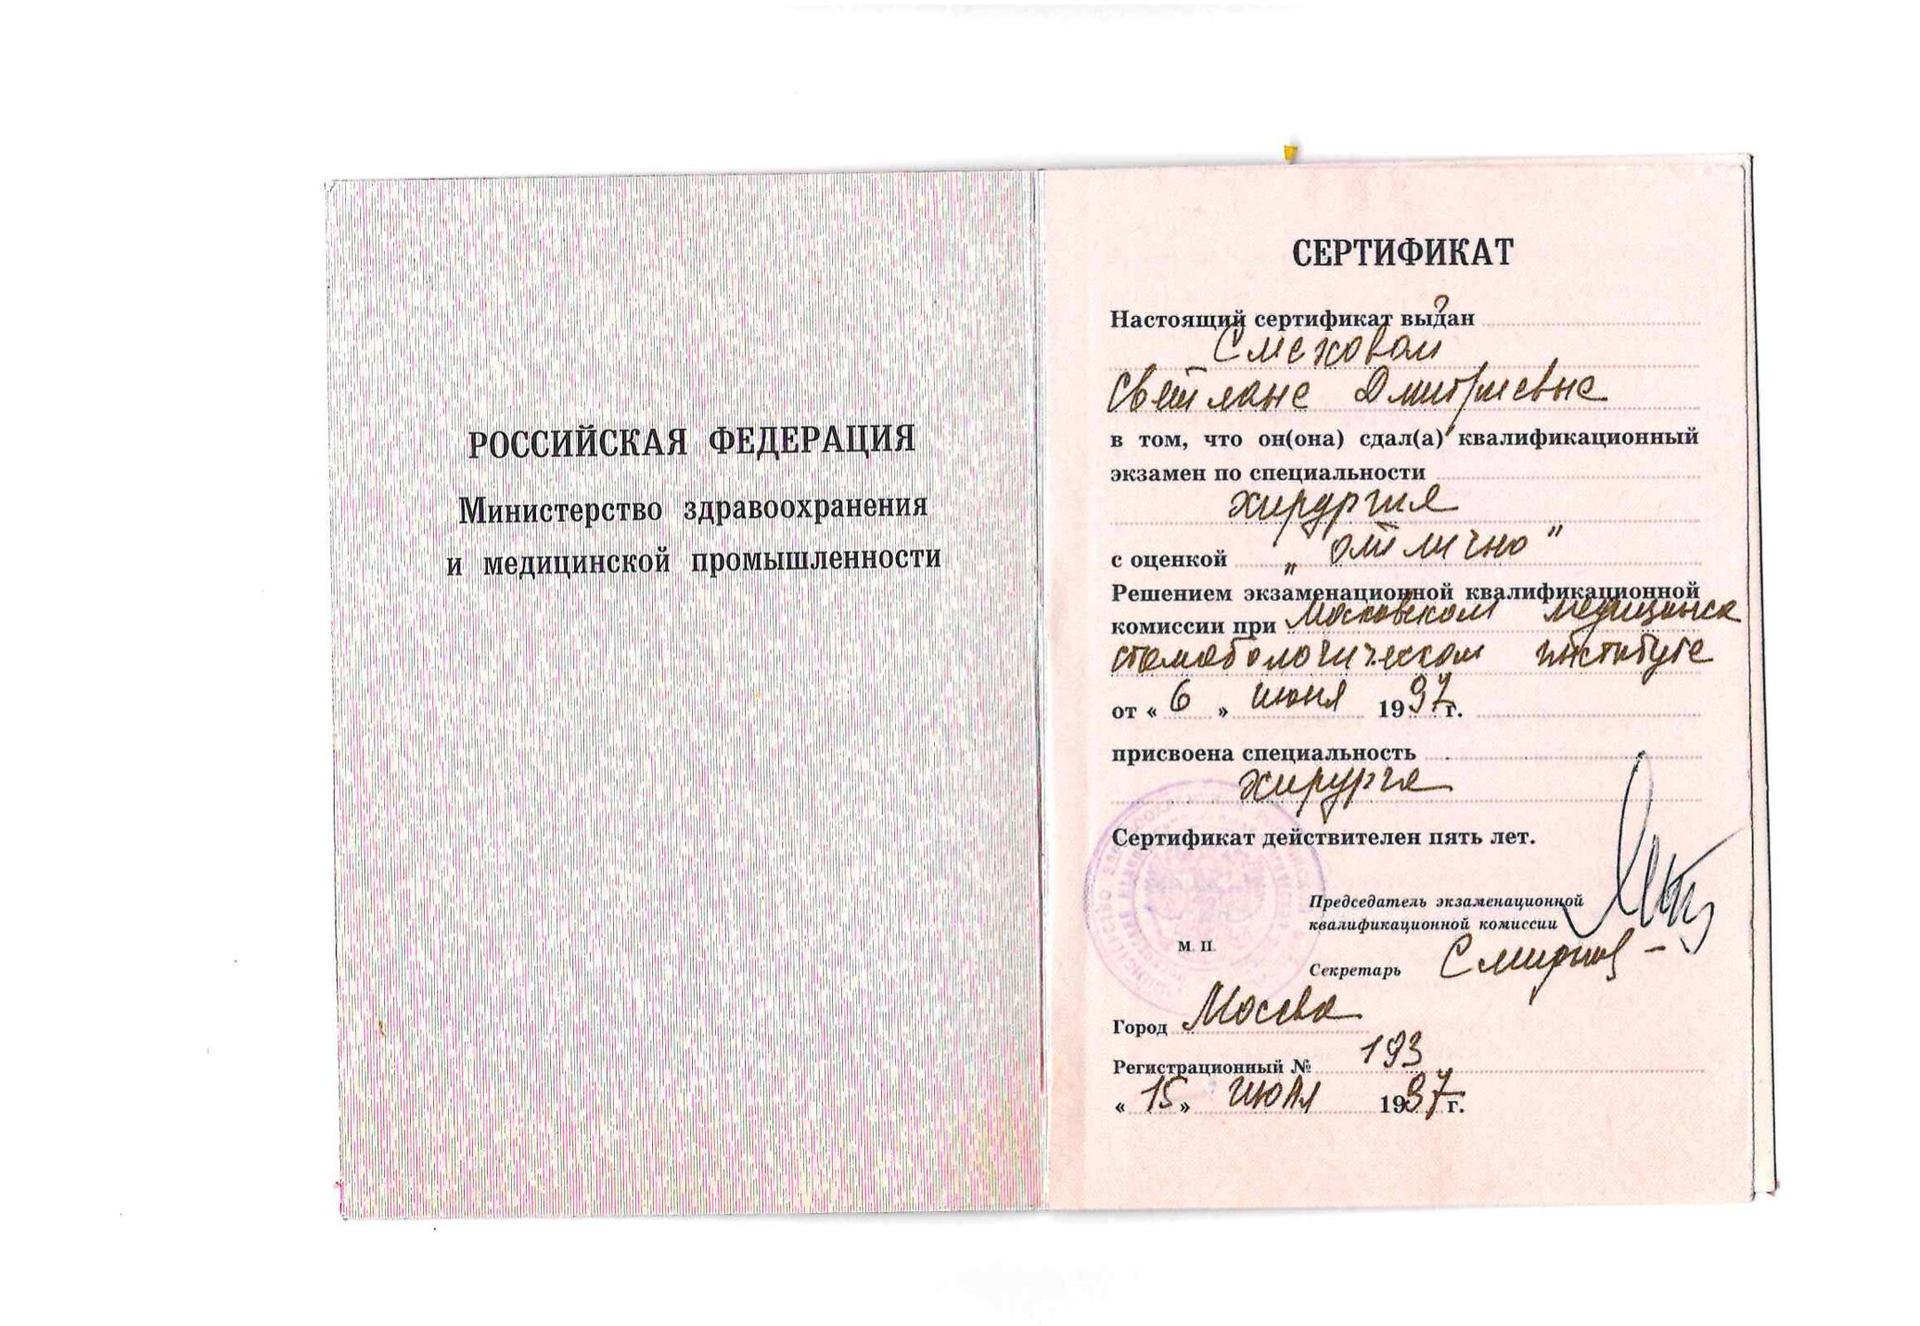 РОССИЙСКАЯ ФЕДЕРАЦИЯ
Министерство здравоохранения
и медицинской промышленности
СЕРТИФИКАТ
Настоящий сертификат выдан
Смеховой
Светлане Дмитриевне
в том, что он(она) сдал(а) квалификационный
экзамен по специальности
хирургия
с оценкой „отлично"
Решением экзаменационной квалификационной
комиссии при Московском медицинск
стоматологическом институте
от « 6 » июня 1997 г.
присвоена специальность
хирургия
Сертификат действителен пять лет.
Председатель экзаменационной
квалификационной комиссии
М. П.
Секретарь
Город Москва
Регистрационный № 193
« 15 » июля 1997 г.